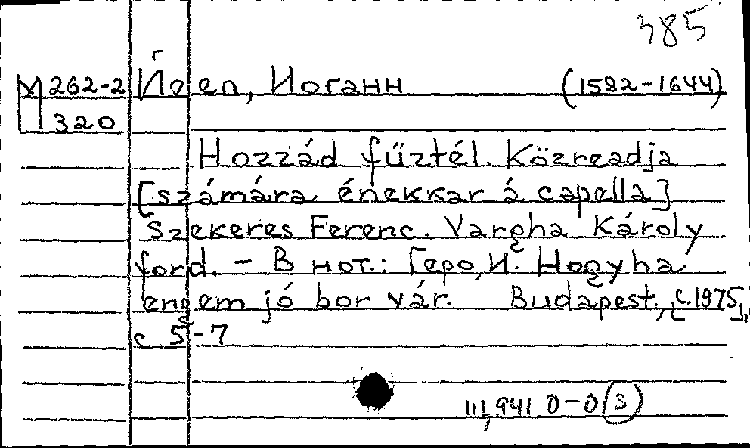 385
М 262-2 Йеен, Иоганн (1582-1644)
320
Hozzád fűztél. Közreadja
[számára énekkar á capella]
Szekeres Ferenc. Vargha Károly
ford. – В нот.: Геро, И. Hogyha
engem jó bor vár. Budapest, [c. 1975],
c 5-7
111,941 0-0 (3)